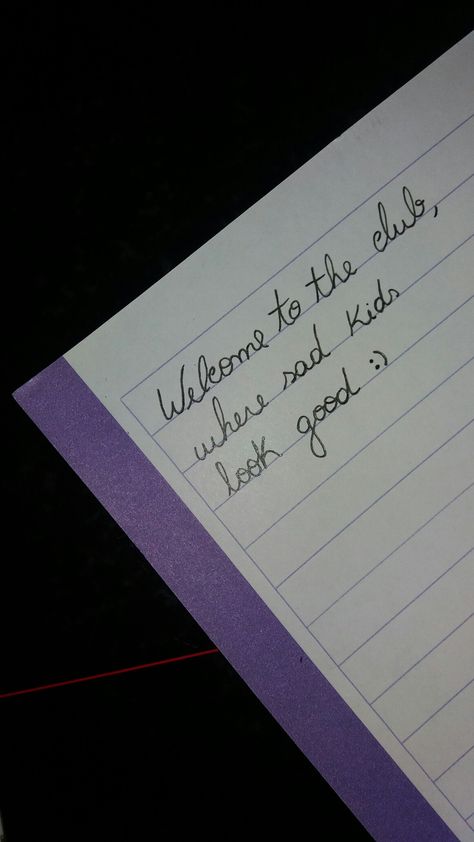 Welcome to the club,
where sad kids
look good :)